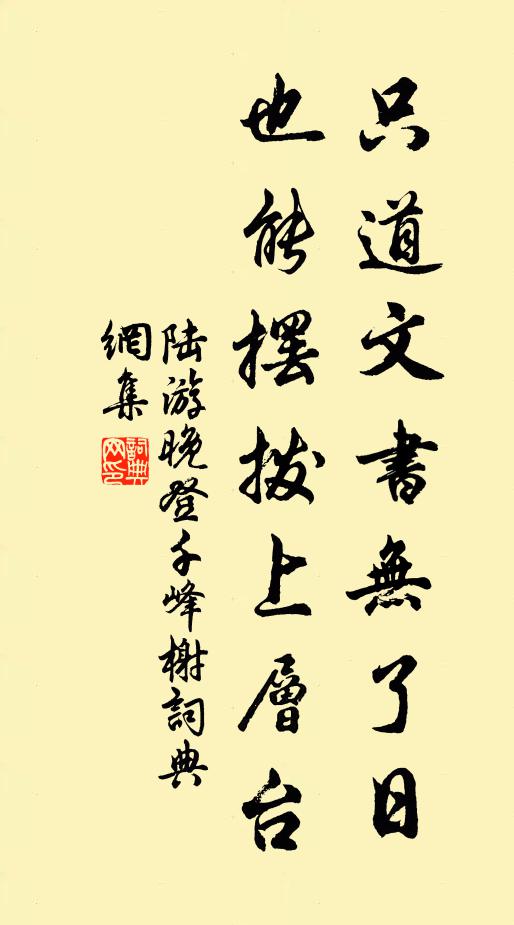 只道文書無了日
也能擺撥上層台
陆游晚登千峰榭詞典
網集
詞典网印